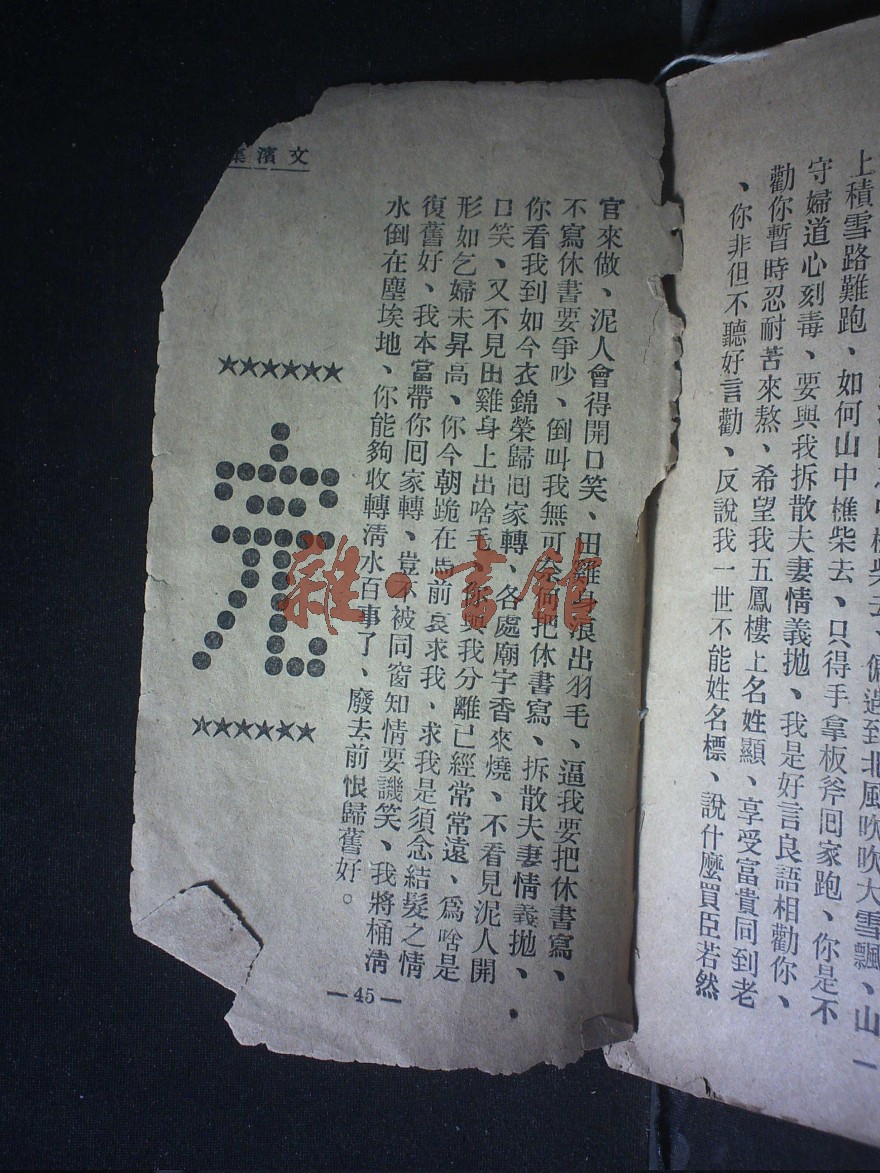 上積雪路難跑、如何山中樵柴去、只得手拿板斧囘家跑、你是不
守婦道心刻毒、要與我拆散夫妻情義拋、我是好言良語相勸你、
勸你暫時忍耐苦來熬、希望我五鳳樓上名姓顯、享受富貴同到老
、你非但不聽好言勸、反說我一世不能姓名標、說什麼買臣若然
文濱
官來做、泥人會得開口笑、田雞身浪出羽毛、逼我要把休書寫、
不寫休書要爭吵、倒叫我無可奈何把休書寫、拆散夫妻情義拋、
你看我到如今衣錦榮歸囘家轉、各處廟宇香來燒、不看見泥人開
口笑、又不見田雞身上出啥毛、你與我分離已經常常遠、爲啥是
形如乞婦未昇高、你今朝跪在馬前哀求我、求我是須念結髮之情
復舊好、我本當帶你囘家轉、豈不被同窗知情要譏笑、我將桶淸
水倒在塵埃地、你能夠收轉淸水百事了、廢去前恨歸舊好。
★★★★★★
完
★★★★★★
—45—
雜·書館